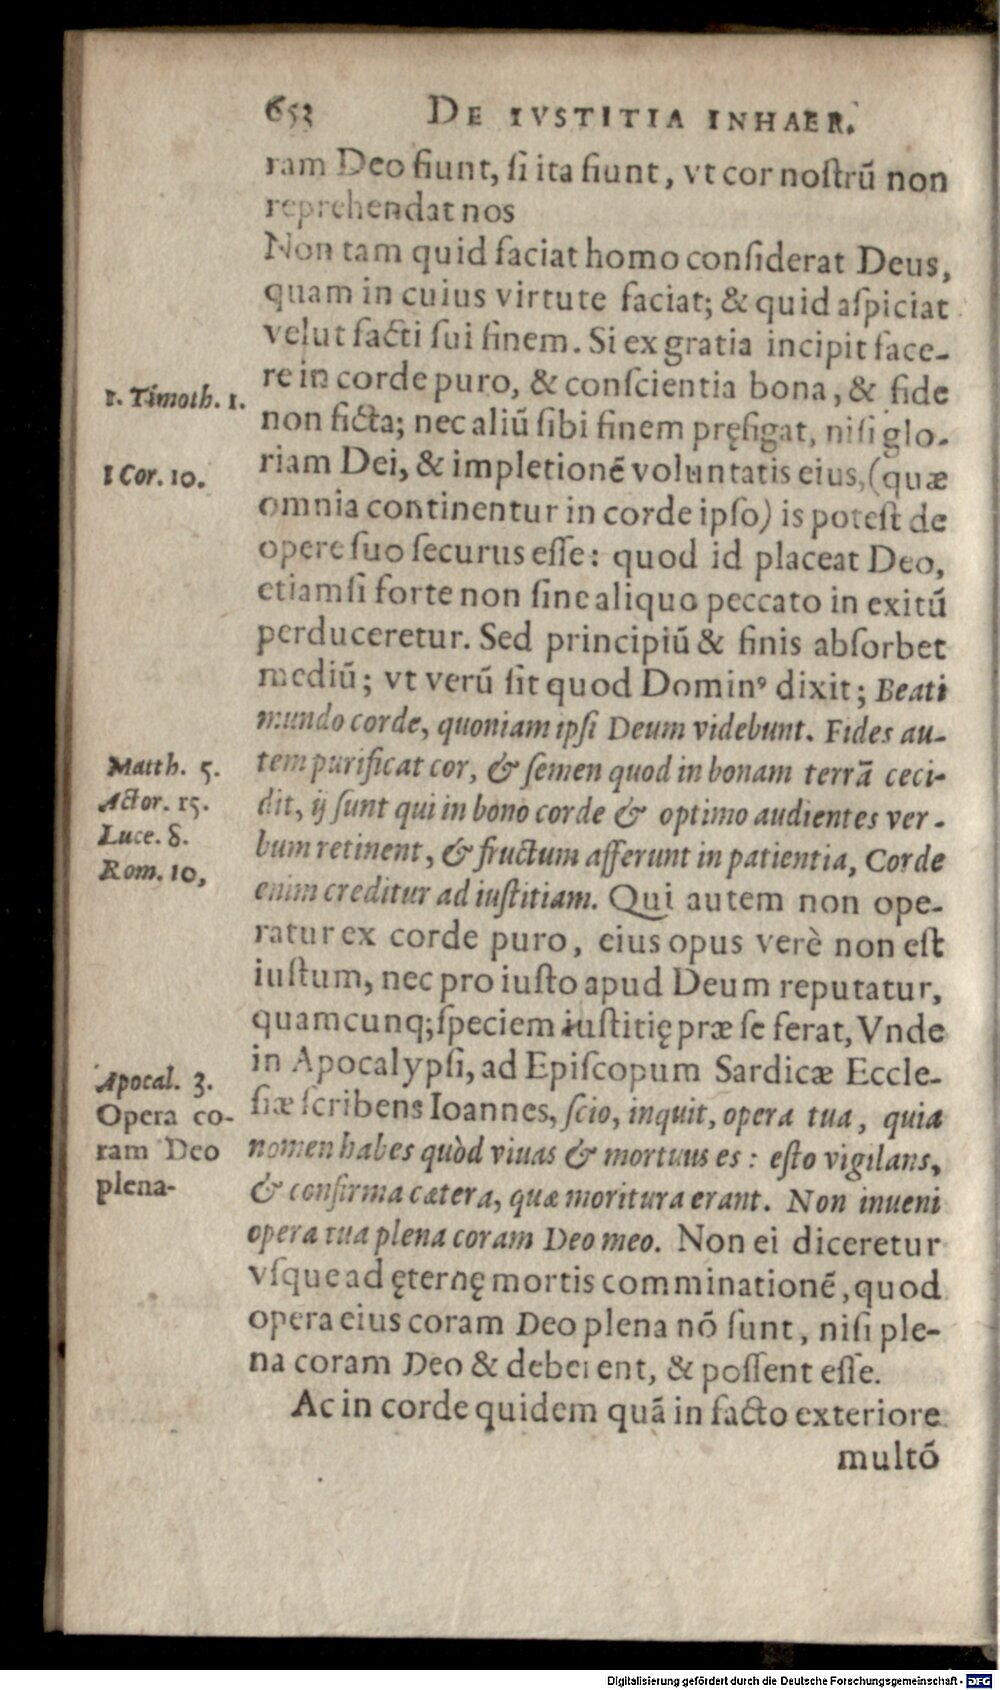 653 DE IVSTITIA INHAER.
ram Deo fiunt, ſi ita fiunt, vt cor noſtrũ non
reprehendat nos
Non tam quid faciat homo conſiderat Deus,
quam in cuius virtute faciat; & quid aſpiciat
velut facti ſui finem. Si ex gratia incipit face-
re in corde puro, & conſcientia bona, & fide
1. Timoth. 1.
non ficta; nec aliũ ſibi finem pręfigat, niſi glo-
riam Dei, & impletionẽ voluntatis eius, (quæ
1 Cor. 10.
omnia continentur in corde ipſo) is poteſt de
opere ſuo ſecurus eſſe: quod id placeat Deo,
etiamſi forte non ſine aliquo peccato in exitũ
perduceretur. Sed principiũ & finis abſorbet
mediũ; vt verũ ſit quod Dominꝰ dixit; Beati
mundo corde, quoniam ipſi Deum videbunt. Fides au-
tem purificat cor, & ſemen quod in bonam terrã ceci-
Matth. 5.
dit, ij ſunt qui in bono corde & optimo audientes ver-
Actor. 15.
Luce. 8.
bum retinent, & fructum afferunt in patientia, Corde
Rom. 10,
enim creditur ad iuſtitiam. Qui autem non ope-
ratur ex corde puro, eius opus verè non eſt
iuſtum, nec pro iuſto apud Deum reputatur,
quamcunq; ſpeciem iuſtitię præ ſe ferat, Vnde
in Apocalypſi, ad Epiſcopum Sardicæ Eccle-
Apocal. 3.
ſiæ ſcribens Ioannes, ſcio, inquit, opera tua, quia
Opera co-
nomen habes quòd viuas & mortuus es: eſto vigilans,
ram Deo
& confirma cætera, quæ moritura erant. Non inueni
plena-
opera tua plena coram Deo meo. Non ei diceretur
vſque ad ęternę mortis comminationẽ, quod
opera eius coram Deo plena nõ ſunt, niſi ple-
na coram Deo & deberent, & poſſent eſſe.
Ac in corde quidem quã in facto exteriore
multõ
Digitalisierung gefördert durch die Deutsche Forschungsgemeinschaft - DFG